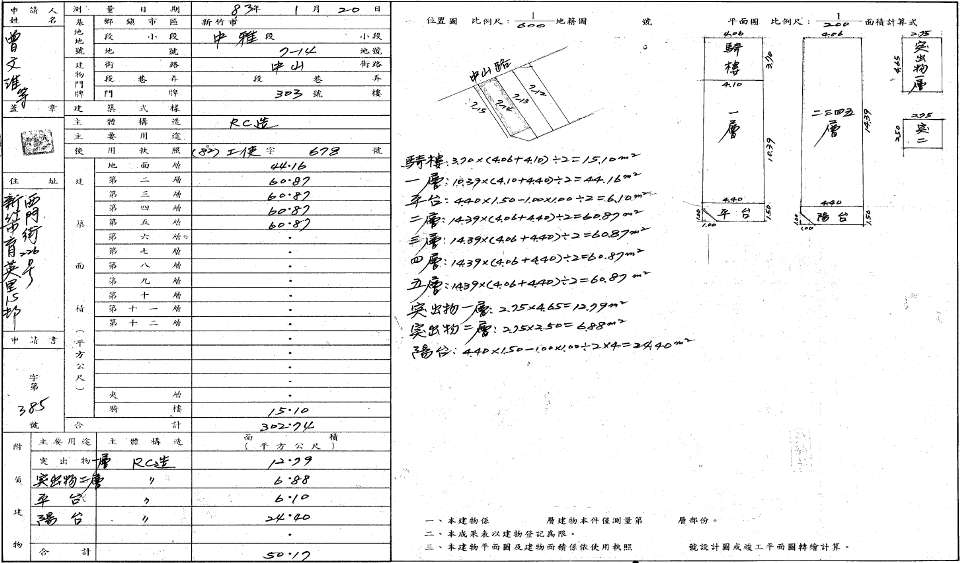 申請人姓名
曾文進等
蓋章
住址
新竹市育英里15鄰
西門街226号
申請書
字第
385
號
測量日期 83年 1月 20日
基地地號 鄉鎮市區 新竹市
段 小段 中雅段 小段
地號 7-14 地號
建物門牌 街路 中山 街路
段巷弄 段 巷 弄
門牌 303 號 樓
建築式樣
主體構造 RC造
主要用途
使用執照 (82)工使字 678 號
建築面積(平方公尺)
地面層 44.16
第二層 60.87
第三層 60.87
第四層 60.87
第五層 60.87
第六層
第七層
第八層
第九層
第十層
第十一層
第十二層
夾層
騎樓 15.10
合計 302.74
附屬建物
主要用途 主體構造 面積(平方公尺)
突出物一層 RC造 12.79
突出物二層 〃 6.88
平台 〃 6.10
陽台 〃 24.40
合計 50.17
位置圖 比例尺:1/600 地籍圖 號
中山路
7-15
7-14
7-13
7-12
平面圖 比例尺:1/200 面積計算式
4.06
騎樓
3.70
4.10
一層
10.39
4.40
平台
1.50
1.00
1.00
4.06
二三四五層
14.39
4.40
陽台
1.50
1.00
1.00
2.75
突出物一層
4.65
2.75
突二
2.50
騎樓:3.70×(4.06+4.10)÷2=15.10m²
一層:10.39×(4.10+4.40)÷2=44.16m²
平台:4.40×1.50-1.00×1.00÷2=6.10m²
二層:14.39×(4.06+4.40)÷2=60.87m²
三層:14.39×(4.06+4.40)÷2=60.87m²
四層:14.39×(4.06+4.40)÷2=60.87m²
五層:14.39×(4.06+4.40)÷2=60.87m²
突出物一層:2.75×4.65=12.79m²
突出物二層:2.75×2.50=6.88m²
陽台:4.40×1.50-1.00×1.00÷2×4=24.40m²
一、本建物係 層建物本件僅測量第 層部份。
二、本成果表以建物登記為限。
三、本建物平面圖及建物面積係依使用執照 號設計圖或竣工平面圖轉繪計算。